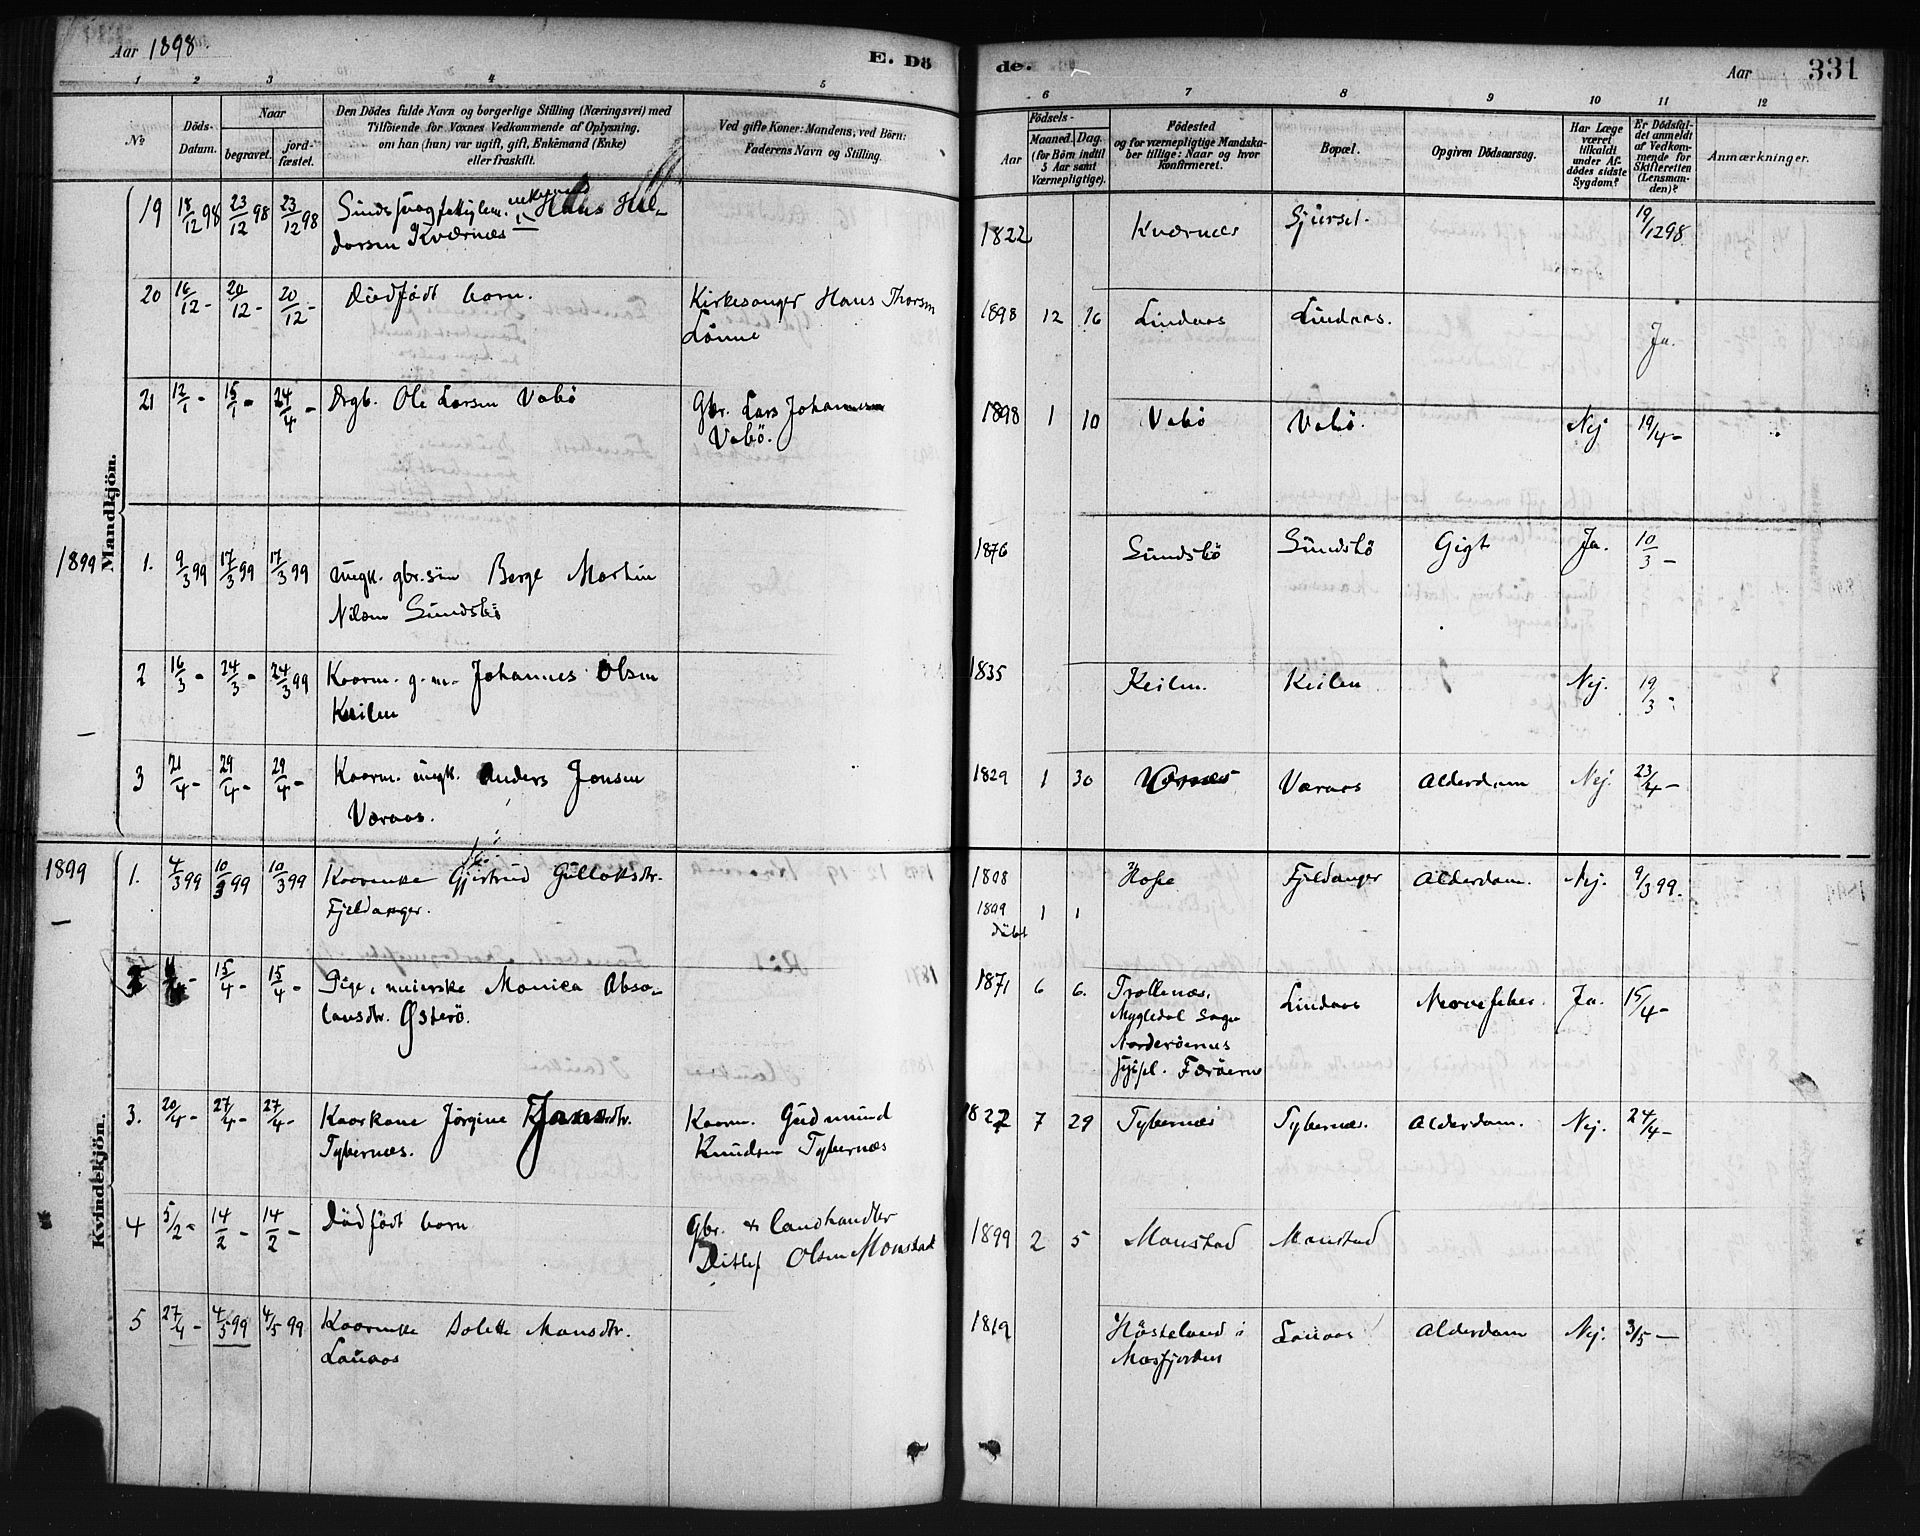 Aar 1898.
E. Dö
de.
Aar
331
1 2 3 4 5
6 7 8 9 10 11 12
No
Döds-
Datum.
Naar
begravet.
jord-
fæstet.
Den Dödes fulde Navn og borgerlige Stilling (Næringsvei) med
Tilföiende for Voxnes Vedkommende af Oplysning,
om han (hun) var ugift, gift, Enkemand (Enke)
eller fraskilt.
Ved gifte Koner: Mandens; ved Börn:
Faderens Navn og Stilling.
Födsels-
Aar
Maaned. Dag.
(for Börn indtil
5 Aar samt
Værnepligtige).
Födested
og for værnepligtige Mandska-
ber tillige: Naar og hvor
konfirmeret.
Bopæl.
Opgiven Dödsaarsag.
Har Læge
været
tilkaldt
under Af-
dödes sidste
Sygdom?
Er Dödsfal-
det anmeldt
af Vedkom-
mende for
Skifteretten
(Lensman-
den)?
Anmærkninger.
Mandkjön.
19 18/12 98 23/12 98 23/12 98 Hans Hel-
dorsen Kværnes
1822 Kværnes 19/12 98.
20 16/12 - 20/12 - 20/12 - Dödfödt barn. Kirkesanger Hans Thorsen
Lönne
1898 12 16 Lindaas Lindaas. Ja.
21 12/1 - 15/1 - 24/4 - Drgb. Ole Larsen Vabö Gbr. Lars Johannesen
Vabö.
1898 1 10 Vabö Vabö. Nej 19/4 -
1899
1. 9/3 99 17/3 99 17/3 99 ungk. gbr.sön Berge Martin
Nilsen Sundsbö
1876 Sundsbö Sundsbö Gigt Ja. 10/3 -
2 16/3 - 24/3 - 24/3 99 Kaarm. g.m. Johannes Olsen
Keilen
1835 Keilen. Keilen Nej. 19/3 -
3 21/4 - 29/4 - 29/4 - Kaarm. ungk. Anders Jonsen
Væraas.
1829 1 30 Væraas Alderdom Nej. 23/4 -
Kvindekjön.
1899
1. 4/3 99 10/3 99 10/3 99 Kaarenke Gjertrud Gullaksdtr.
Fjeldanger.
1808 Hope Fjeldanger Alderdom. Nej. 9/3 99.
1809 1 1
Döbt
2 15/4 - 15/4 - Pige, meierske Monica Absa-
lonsdtr. Østerö.
1871 6 6. Trollenæs,
Mygledal Sogn
Norderöernes
Syssel. Færöerne
Lindaas Nervefeber. Ja. 15/4 -
3. 20/4 - 27/4 - 27/4 - Kaarkone Jörgine Jansdtr.
Tybernæs.
Kaarm. Gudmund
Knudsen Tybernæs
1827 7 29 Tybernæs Tybernæs. Alderdom. Nej. 24/4 -
4 5/2 - 14/2 - 14/2 - Dödfödt barn Gbr. & landhandler
Ditlef Olsen Monstad
1899 2 5 Monstad Monstad
5 27/4 - 4/5 99 4/5 99 Kaarenke Solette Monsdtr.
Lauaas
1819 Höstelund i
Masfjorden
Lauaas Alderdom Nej. 3/5 -